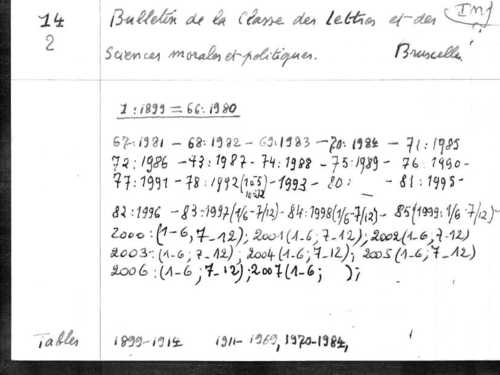 14 Bulletin de la Classe des Lettres et des Inf
2 Sciences morales et politiques. Bruxelles
1:1899 = 66:1980
67:1981 – 68:1982 – 69:1983 – 70:1984 – 71:1985
72:1986 – 73:1987 – 74:1988 – 75:1989 – 76:1990 –
77:1991 – 78:1992 (1-5) – 1993 – 80: – 81:1995 –
82:1996 – 83:1997 (1/6-7/12) – 84:1998 (1/6-7/12) – 85 (1999: 1/6-7/12) –
2000:(1-6, 7-12); 2001 (1-6; 7-12); 2002 (1-6, 7-12)
2003:(1-6; 7-12); 2004 (1-6; 7-12); 2005 (1-6; 7-12)
2006:(1-6; 7-12); 2007 (1-6; );
Tables 1899-1914 1911-1969, 1970-1984,